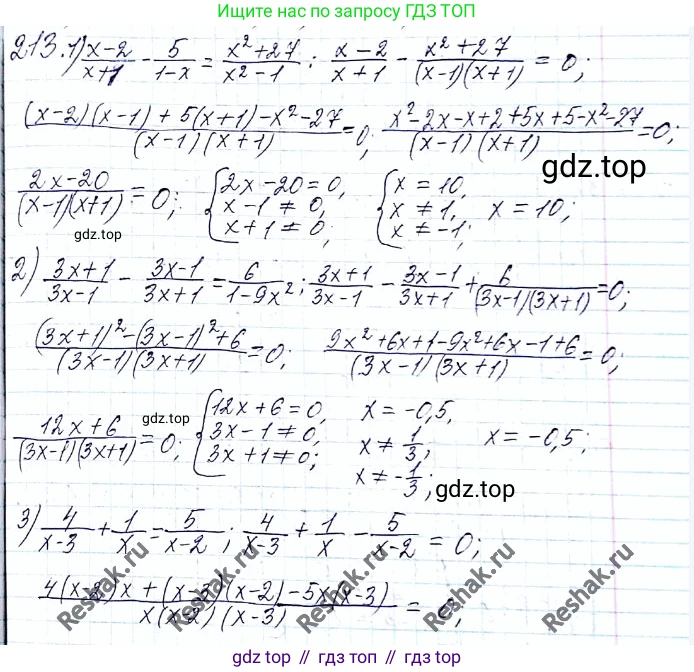 Ищите ответы и решения
на сайте ГДЗ ТОП
213. 1) (x-2)/(x+1) - 5/(1-x) = (x²+27)/(x²-1); (x-2)/(x+1) - (x²+27)/((x-1)(x+1)) = 0;
((x-2)(x-1)+5(x+1)-x²-27)/((x-1)(x+1)) = 0; (x²-2x-x+2+5x+5-x²-27)/((x-1)(x+1)) = 0;
gdz.top
(2x-20)/((x-1)(x+1)) = 0; { 2x-20=0, x-1≠0, x+1≠0; { x=10, x≠1, x≠-1; x=10;
gdz.top
2) (3x+1)/(3x-1) - (3x-1)/(3x+1) = 6/(1-9x²); (3x+1)/(3x-1) - (3x-1)/(3x+1) + 6/((3x-1)(3x+1)) = 0;
((3x+1)²-(3x-1)²+6)/((3x-1)(3x+1)) = 0; (9x²+6x+1-9x²+6x-1+6)/((3x-1)(3x+1)) = 0;
(12x+6)/((3x-1)(3x+1)) = 0; { 12x+6=0, 3x-1≠0, 3x+1≠0; x=-0,5, x≠1/3, x≠-1/3; x=-0,5;
gdz.top
gdz.top
3) 4/(x-3) + 1/x = 5/(x-2); 4/(x-3) + 1/x - 5/(x-2) = 0;
(4(x-2)x+(x-3)(x-2)-5x(x-3))/(x(x-2)(x-3)) = 0;
Reshak.ru Reshak.ru Reshak.ru Reshak.ru
gdz.top // gdz.top // gdz.top // gdz.top